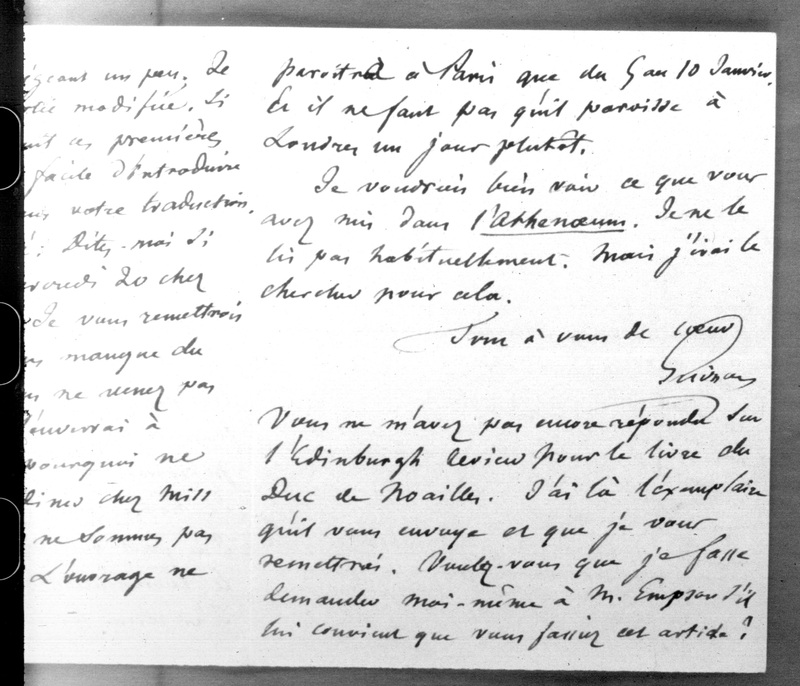 un peu. Je
modifiée. Si
ces premières
facile d'introduire
votre traduction.
Dites-moi Si
20 chez
Je vous remettrois
manque du
ne venez pas
à
pourquoi ne
chez Miss
ne Sommes pas
L'ouvrage ne
paroître à Paris que du 5 au 10 Janvier.
Et il ne faut pas qu'il paroisse à
Londres un jour plutôt.
Je voudrois bien voir ce que vous
avez mis dans l'Athenœum. Je ne le
lis pas habituellement. Mais j'irai le
chercher pour cela.
Tout à vous de cœur
Vous ne m'avez pas encore répondu Sur
l'Edinburgh review pour le livre du
Duc de Noailles. J'ai là l'exemplaire
qu'il vous envoye et que je vous
remettrai. Voulez-vous que je fasse
demander moi-même à M. Empson s'il
lui convient que vous fassiez cet article?